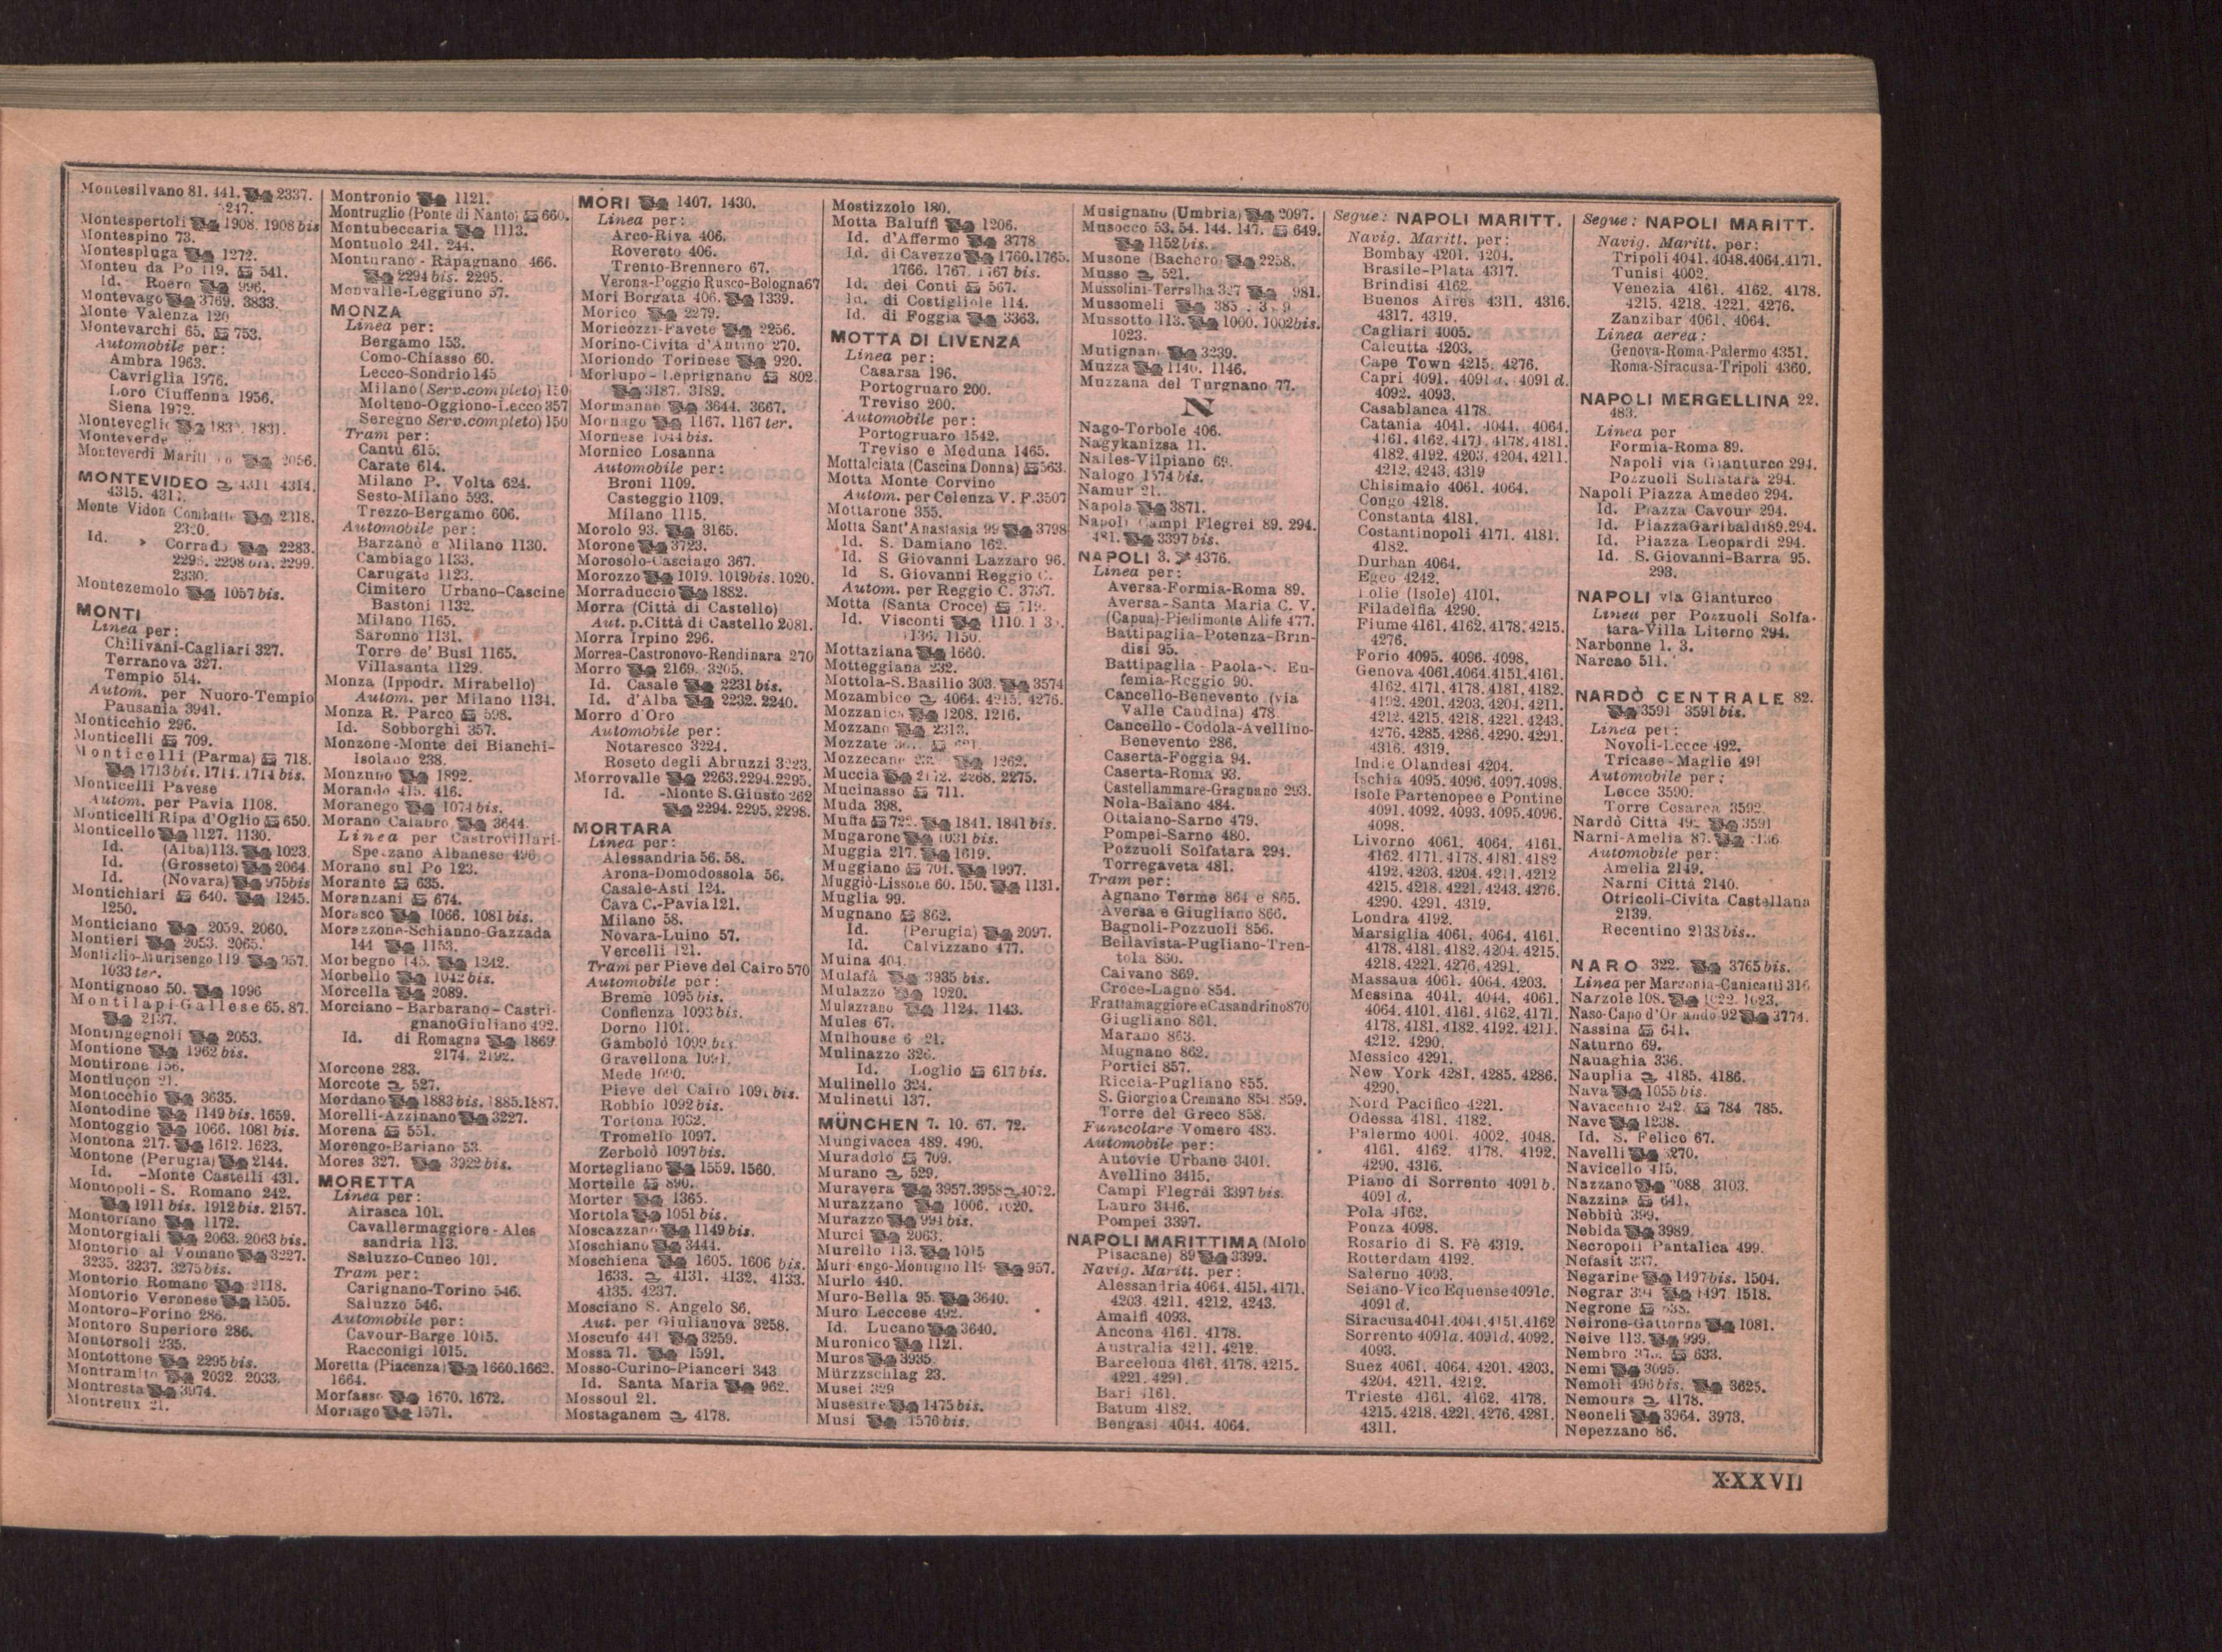 Montesilvano 81. 441. 2337.
Montespertoli 1908. 1908 bis
Montespino 73.
Montespluga 1272.
Monteu da Po 119. 541.
Id. Roero 996.
Montevago 3769. 3833.
Monte Valenza 120
Montevarchi 65. 753.
Automobile per:
Ambra 1963.
Cavriglia 1976.
Loro Ciuffenna 1956.
Siena 1972.
1831.
Monteverde
Monteverdi 2056.
MONTEVIDEO 4311 4314.
4315.
Monte Vidon Combatte 2318.
Id. Corrado 2283.
2299.
2330.
Montezemolo 1057 bis.
MONTI
Linea per:
Chilivani-Cagliari 327.
Terranova 327.
Tempio 514.
Autom. per Nuoro-Tempio
Pausania 3941.
Monticchio 296.
Monticelli 709.
Monticelli (Parma) 718.
1713 bis. 1714. 1714 bis.
Monticelli Pavese
Autom. per Pavia 1108.
Monticelli Ripa d'Oglio 650.
Monticello 1127. 1130.
Id. (Alba) 113. 1023.
Id. (Grosseto) 2064
Id. (Novara) 975 bis
Montichiari 640. 1245.
1250.
Monticiano 2059. 2060.
Montieri 2053. 2065.
Montiglio-Murisengo 119. 957.
1033 ter.
Montignoso 50. 1996
Montilapi-Gallese 65. 87.
2137.
Montingegnoli 2053.
Montione 1962 bis.
Montirone 156.
Montluçon 21.
Montocchio 3635.
Montodine 1149 bis. 1659.
Montoggio 1066. 1081 bis.
Montona 217. 1612. 1623.
Montone (Perugia) 2144.
Id. -Monte Castelli 431.
Montopoli - S. Romano 242.
1911 bis. 1912 bis. 2157.
Montoriano 1172.
Montorgiali 2063. 2063 bis.
Montorio al Vomano 3227.
3235. 3237. 3275 bis.
Montorio Romano 2118.
Montorio Veronese 1505.
Montoro-Forino 286.
Montoro Superiore 286.
Montorsoli 235.
Montottone 2295 bis.
Montramito 2032. 2033.
Montresta 3974.
Montreux 21.
Montronio 1121.
Montruglio (Ponte di Nanto) 660.
Montubeccaria 1113.
Montuolo 241. 244.
Monturano - Rapagnano 466.
2294 bis. 2295.
Monvalle-Leggiuno 57.
MONZA
Linea per:
Bergamo 153.
Como-Chiasso 60.
Lecco-Sondrio 145
Milano (Serv. completo) 150
Molteno-Oggiono-Lecco 357
Seregno Serv. completo) 150
Tram per:
Cantù 615.
Carate 614.
Milano P. Volta 624.
Sesto-Milano 593.
Trezzo-Bergamo 606.
Automobile per:
Barzanò e Milano 1130.
Cambiago 1133.
Carugate 1123.
Cimitero Urbano-Cascine
Bastoni 1132.
Milano 1165.
Saronno 1131.
Torre de' Busi 1165.
Villasanta 1129.
Monza (Ippodr. Mirabello)
Autom. per Milano 1134.
Monza R. Parco 598.
Id. Sobborghi 357.
Monzone-Monte dei Bianchi-
Isolano 238.
Monzuno 1892.
Morando 415. 416.
Moranego 1074 bis.
Morano Calabro 3644.
Linea per Castrovillari-
Spezzano Albanese 496
Morano sul Po 123.
Morante 635.
Moranzani 674.
Morasco 1066. 1081 bis.
Morazzone-Schianno-Gazzada
144 1153.
Morbegno 145. 1242.
Morbello 1042 bis.
Morcella 2089.
Morciano - Barbarano - Castri-
gnano Giuliano 492.
Id. di Romagna 1869
2174. 2192.
Morcone 283.
Morcote 527.
Mordano 1883 bis. 1885. 1887.
Morelli-Azzinano 3227.
Morena 551.
Morengo-Bariano 53.
Mores 327. 3922 bis.
MORETTA
Linea per:
Airasca 101.
Cavallermaggiore - Ales
sandria 113.
Saluzzo-Cuneo 101.
Tram per:
Carignano-Torino 546.
Saluzzo 546.
Automobile per:
Cavour-Barge 1015.
Racconigi 1015.
Moretta (Piacenza) 1660. 1662.
1664.
Morfasso 1670. 1672.
Moriago 1571.
MORI 1407. 1430.
Linea per:
Arco-Riva 406.
Rovereto 406.
Trento-Brennero 67.
Verona-Poggio Rusco-Bologna 67
Mori Borgata 406. 1339.
Morico 2279.
Moricozzi-Pavete 2256.
Morino-Civita d'Antino 270.
Moriondo Torinese 920.
Morlupo - Leprignano 802.
3187. 3189.
Mormanno 3644. 3667.
Mornago 1167. 1167 ter.
Mornese 1044 bis.
Mornico Losanna
Automobile per:
Broni 1109.
Casteggio 1109.
Milano 1115.
Morolo 93. 3165.
Morone 3723.
Morosolo-Casciago 367.
Morozzo 1019. 1019 bis. 1020.
Morraduccio 1882.
Morra (Città di Castello)
Aut. p. Città di Castello 2081.
Morra Irpino 296.
Morrea-Castronovo-Rendinara 270
Morro 2169. 3205.
Id. Casale 2231 bis.
Id. d'Alba 2232. 2240.
Morro d'Oro
Automobile per:
Notaresco 3224.
Roseto degli Abruzzi 3223.
Morrovalle 2263. 2294. 2295.
Id. -Monte S. Giusto 262
2294. 2295. 2298.
MORTARA
Linea per:
Alessandria 56. 58.
Arona-Domodossola 56.
Casale-Asti 124.
Cava C.-Pavia 121.
Milano 58.
Novara-Luino 57.
Vercelli 121.
Tram per Pieve del Cairo 570
Automobile per:
Breme 1095 bis.
Confienza 1093 bis.
Dorno 1101.
Gambolò 1099 bis.
Gravellona 1091.
Mede 1090.
Pieve del Cairo bis.
Robbio 1092 bis.
Tortona 1032.
Tromello 1097.
Zerbolò 1097 bis.
Mortegliano 1559. 1560.
Mortelle 890.
Morter 1365.
Mortola 1051 bis.
Moscazzano 1149 bis.
Moschiano 3444.
Moschiena 1605. 1606 bis.
1633. 4131. 4132. 4133.
4135. 4237.
Mosciano S. Angelo 86.
Aut. per Giulianova 3258.
Moscufo 441 3259.
Mossa 71. 1591.
Mosso-Curino-Pianceri 343
Id. Santa Maria 962.
Mossoul 21.
Mostaganem 4178.
Mostizzolo 180.
Motta Baluffi 1206.
Id. d'Affermo 3778
Id. di Cavezzo 1760. 1765.
1766. 1767. 1767 bis.
Id. dei Conti 567.
Id. di Costigliole 114.
Id. di Foggia 3363.
MOTTA DI LIVENZA
Linea per:
Casarsa 196.
Portogruaro 200.
Treviso 200.
Automobile per:
Portogruaro 1542.
Treviso e Meduna 1465.
Mottalciata (Cascina Donna) 563.
Motta Monte Corvino
Autom. per Celenza V. F. 3507
Mottarone 355.
Motta Sant'Anastasia 99 3798
Id. S. Damiano 162.
Id. S Giovanni Lazzaro 96.
Id S. Giovanni Reggio C.
Autom. per Reggio C. 3737.
Motta (Santa Croce) 719.
Id. Visconti 1110.
1136. 1150.
Mottaziana 1660.
Motteggiana 232.
Mottola-S. Basilio 303. 3574
Mozambico 4064. 4215. 4276.
Mozzanica 1208. 1216.
Mozzano 2313.
Mozzate
Mozzecane 1262.
Muccia 2172. 2268. 2275.
Mucinasso 711.
Muda 398.
Muffa 1841. 1841 bis.
Mugarone 1031 bis.
Muggia 217. 1619.
Muggiano 701. 1997.
Muggiò-Lissone 60. 150. 1131.
Muglia 99.
Mugnano 862.
Id. (Perugia) 2097.
Id. Calvizzano 477.
Muina 404.
Mulafà 3935 bis.
Mulazzo 1920.
Mulazzano 1124. 1143.
Mules 67.
Mulhouse 6 21.
Mulinazzo 326.
Id. Loglio 617 bis.
Mulinello 324.
Mulinetti 137.
MÜNCHEN 7. 10. 67. 72.
Mungivacca 489. 490.
Muradolo 709.
Murano 529.
Muravera 3957. 3958 4072.
Murazzano 1006. 1020.
Murazzo 994 bis.
Murci 2063.
Murello 113. 1015
Murisengo-Montiglio 119 957.
Murlo 440.
Muro-Bella 95. 3640.
Muro Leccese 492.
Id. Lucano 3640.
Muronico 1121.
Muros 3935.
Mürzzschlag 23.
Musei 329
Musestre 1475 bis.
Musi 1576 bis.
Musignano (Umbria) 2097.
Musocco 53. 54. 144. 147. 649.
1152 bis.
Musone (Bachero) 2258.
Musso 521.
Mussolini-Terralba 327 981.
Mussomeli 385
Mussotto 113. 1000. 1002 bis.
1023.
Mutignano 3239.
Muzza 1140. 1146.
Muzzana del Turgnano 77.
N
Nago-Torbole 406.
Nagykanizsa 11.
Nalles-Vilpiano 69.
Nalogo 1574 bis.
Namur 21.
Napola 3871.
Napoli Campi Flegrei 89. 294.
481. 3397 bis.
NAPOLI 3. 4376.
Linea per:
Aversa-Formia-Roma 89.
Aversa-Santa Maria C. V.
(Capua)-Piedimonte Alife 477.
Battipaglia-Potenza-Brin-
disi 95.
Battipaglia - Paola-S. Eu-
femia-Reggio 90.
Cancello-Benevento (via
Valle Caudina) 478
Cancello-Codola-Avellino-
Benevento 286.
Caserta-Foggia 94.
Caserta-Roma 93.
Castellammare-Gragnano 293.
Nola-Baiano 484.
Ottaiano-Sarno 479.
Pompei-Sarno 480.
Pozzuoli Solfatara 294.
Torregaveta 481.
Tram per:
Agnano Terme 864 e 865.
Aversa e Giugliano 866.
Bagnoli-Pozzuoli 856.
Bellavista-Pugliano-Tren-
tola 860.
Caivano 869.
Croce-Lagno 854.
Frattamaggiore e Casandrino 870
Giugliano 861.
Marano 863.
Mugnano 862.
Portici 857.
Riccia-Pugliano 855.
S. Giorgio a Cremano 854. 859.
Torre del Greco 858.
Funicolare Vomero 483.
Automobile per:
Autovie Urbane 3401.
Avellino 3415.
Campi Flegrei 3397 bis.
Lauro 3446.
Pompei 3397.
NAPOLI MARITTIMA (Molo
Pisacane) 89 3399.
Navig. Maritt. per:
Alessandria 4064. 4151. 4171.
4203. 4211. 4212. 4243.
Amalfi 4093.
Ancona 4161. 4178.
Australia 4211. 4212.
Barcelona 4161. 4178. 4215.
4221. 4291.
Bari 4161.
Batum 4182.
Bengasi 4044. 4064.
Segue: NAPOLI MARITT.
Navig. Maritt. per:
Bombay 4201. 4204.
Brasile-Plata 4317.
Brindisi 4162.
Buenos Aires 4311. 4316.
4317. 4319.
Cagliari 4005.
Calcutta 4203.
Cape Town 4215. 4276.
Capri 4091. 4091 a. 4091 d.
4092. 4093.
Casablanca 4178.
Catania 4041. 4044. 4064.
4161. 4162. 4171. 4178. 4181.
4182. 4192. 4203. 4204. 4211.
4212. 4243. 4319
Chisimaio 4061. 4064.
Congo 4218.
Constanta 4181.
Costantinopoli 4171. 4181.
4182.
Durban 4064.
Egeo 4242.
Eolie (Isole) 4101.
Filadelfia 4290.
Fiume 4161. 4162. 4178. 4215.
4276.
Forio 4095. 4096. 4098.
Genova 4061. 4064. 4151. 4161.
4162. 4171. 4178. 4181. 4182.
4192. 4201. 4203. 4204. 4211.
4212. 4215. 4218. 4221. 4243.
4276. 4285. 4286. 4290. 4291.
4316. 4319.
Indie Olandesi 4204.
Ischia 4095. 4096. 4097. 4098.
Isole Partenopee e Pontine
4091. 4092. 4093. 4095. 4096.
4098.
Livorno 4061. 4064. 4161.
4162. 4171. 4178. 4181. 4182
4192. 4203. 4204. 4211. 4212
4215. 4218. 4221. 4243. 4276.
4290. 4291. 4319.
Londra 4192.
Marsiglia 4061. 4064. 4161.
4178. 4181. 4182. 4204. 4215.
4218. 4221. 4276. 4291.
Massaua 4061. 4064. 4203.
Messina 4041. 4044. 4061.
4064. 4101. 4161. 4162. 4171.
4178. 4181. 4182. 4192. 4211.
4212. 4290.
Messico 4291.
New York 4281. 4285. 4286.
4290.
Nord Pacifico 4221.
Odessa 4181. 4182.
Palermo 4001. 4002. 4048.
4161. 4162. 4178. 4192.
4290. 4316.
Piano di Sorrento 4091 b.
4091 d.
Pola 4162.
Ponza 4098.
Rosario di S. Fè 4319.
Rotterdam 4192.
Salerno 4093.
Seiano-Vico Equense 4091 c.
4091 d.
Siracusa 4041. 4044. 4151. 4162
Sorrento 4091 a. 4091 d. 4092.
4093.
Suez 4061. 4064. 4201. 4203.
4204. 4211. 4212.
Trieste 4161. 4162. 4178.
4215. 4218. 4221. 4276. 4281.
4311.
Segue: NAPOLI MARITT.
Navig. Maritt. per:
Tripoli 4041. 4048. 4064. 4171.
Tunisi 4002.
Venezia 4161. 4162. 4178.
4215. 4218. 4221. 4276.
Zanzibar 4061. 4064.
Linea aerea:
Genova-Roma-Palermo 4351.
Roma-Siracusa-Tripoli 4360.
NAPOLI MERGELLINA 22.
483.
Linea per
Formia-Roma 89.
Napoli via Gianturco 294.
Pozzuoli Solfatara 294.
Napoli Piazza Amedeo 294.
Id. Piazza Cavour 294.
Id. Piazza Garibaldi 89. 294.
Id. Piazza Leopardi 294.
Id. S. Giovanni-Barra 95.
293.
NAPOLI via Gianturco
Linea per Pozzuoli Solfa-
tara-Villa Literno 294.
Narbonne 1. 3.
Narcao 511.
NARDÒ CENTRALE 82.
3591 3591 bis.
Linea per:
Novoli-Lecce 492.
Tricase-Maglie 491
Automobile per:
Lecce 3590.
Torre Cesarea 3592
Nardò Città 492 3591
Narni-Amelia 87.
Automobile per:
Amelia 2149.
Narni Città 2140.
Otricoli-Civita Castellana
2139.
Recentino 2138 bis.
NARO 322. 3765 bis.
Linea per Margonia-Canicattì 316
Narzole 108. 1022. 1023.
Naso-Capo d'Orlando 92 3774.
Nassina 641.
Naturno 69.
Nauaghia 336.
Nauplia 4185. 4186.
Nava 1055 bis.
Navacchio 242. 784 785.
Nave 1238.
Id. S. Felice 67.
Navelli 3270.
Navicello 415.
Nazzano 2088. 3103.
Nazzina 641.
Nebbiù 399.
Nebida 3989.
Necropoli Pantalica 499.
Nefasit 337.
Negarine 1497 bis. 1504.
Negrar 394 1497. 1518.
Negrone 638.
Neirone-Gattorna 1081.
Neive 113. 999.
Nembro 633.
Nemi 3095.
Nemoli 496 bis. 3625.
Nemours 4178.
Neoneli 3964. 3973.
Nepezzano 86.
XXXVII